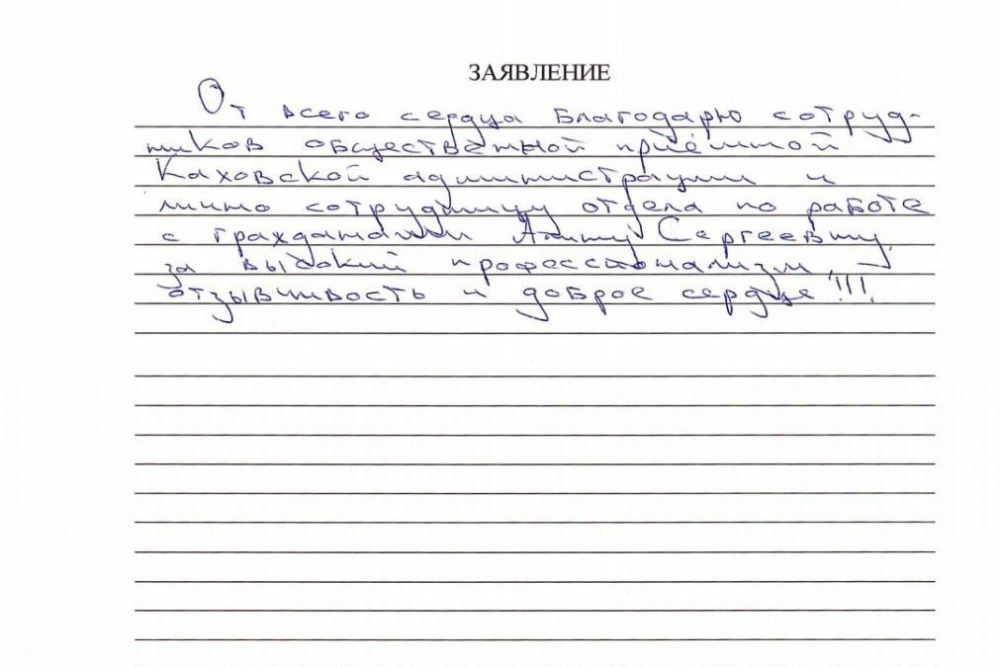 ЗАЯВЛЕНИЕ
От всего сердца благодарю сотруд-
ников общественной приёмной
Каховской администрации и
лично сотрудницу отдела по работе
с гражданами Сергеевну,
за высокий профессионализм,
отзывчивость и доброе сердце!!!